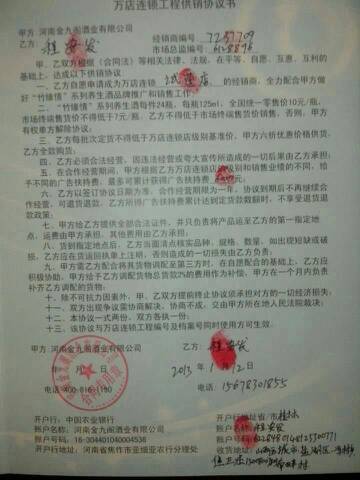 万店连锁工程供销协议书
甲方:河南金九阁酒业有限公司 经销商编号:
乙方:程安发 市场总监编号:
甲、乙双方根据《合同法》等相关法律、法规,在平等、自愿、互惠、互利的
基础上,达成以下供销协议
一、乙方自愿申请成为万店连锁工程的 经销,全力配合甲方做
好“竹缘情”系列养生酒品牌推广和销售工作
二、“竹缘情”系列养生酒每件24瓶,每瓶125ml,全国统一零售价10元/瓶,
市场终端售货价不得低于7元/瓶。乙方不得低于市场终端售货价销售,否则,甲方
有权单方解除协议;
三、乙方每批次定货不得低于万店连锁店级别基准价,甲方六折优惠价格供货,
乙方全款购货;
四、乙方必须合法经营,因违法经营或夸大宣传所造成的一切后果由乙方承担;
五、在合作经营期间,甲方根据乙方万店连锁店级别和销售业绩的不同,给
予不同的广告扶持费,最多可累计获得广告扶持费
六、乙方以签订协议日期为准,合作经营期限为一年,协议到期后不再继续合
作经营,可退货退款。乙方所得广告扶持费累计达到定货款数额时,不享受退货退
款政策
七、甲方给乙方提供全部合法证件,并只负责将产品运至乙方的第一指定地
点,运费由甲方承担。其他费用由乙方承担。
八、货到指定地点后,乙方当面清点核实品种、规格、数量,如出现短缺或破
损,乙方应在货运回执单上注明,否则造成的一切损失由乙方负责;
九、甲方需乙方配合将其货物调配至第三方时,在自愿配合的基础上,乙方应
积极协助。甲方给予乙方调配货物总货款2%的费用作为补偿,甲方在一个月内负责
补齐乙方调配的货物;
十、除不可抗力因素外,甲、乙双方提前终止协议须承担对方的一切经济损失;
十一、双方出现争议需协商解决,协商不成,交由甲方所在地人民法院裁决;
十二、本协议一式两份,双方各执一份;
十三、该协议与万店连锁工程编号及档案号同时使用方可生效。
甲方:河南金九阁酒业有限公司 乙方:程安发
年 月 日 2013年1月12日
电话:400-816-1180 电话:15678301855
开户行:中国农业银行
户名:河南金九阁酒业有限公司
账号:16-304401040004538
开户行:河南省焦作市亚细亚农行分理处
开户行地址: 省/市桂林
账户名称:程安发
账户号码:
收货地址: